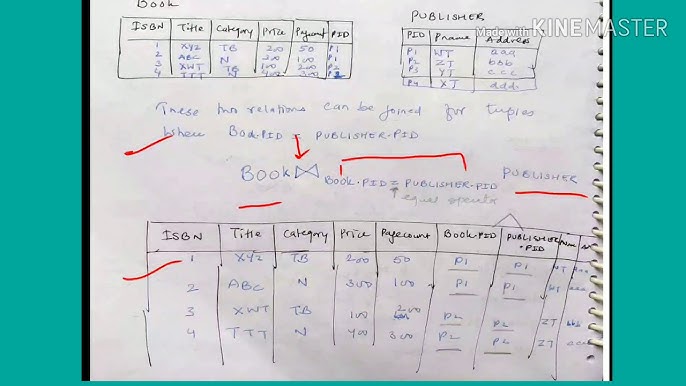 Book
ISBN Title Category Price Pagecount PID
1 XYZ TB 200 50 P1
2 ABC N 300 100 P1
3 XWT TB 100 200 P2
4 TTT N 400 300 P2
PUBLISHER
PID Pname Address
P1 WT aaa
P2 ZT bbb
P3 YT ccc
P4 XT ddd
Made with KINEMASTER
These two relations can be joined for tuples
Where Book.PID = PUBLISHER.PID
Book ⋈ Book.PID = PUBLISHER.PID PUBLISHER
equal operator
ISBN Title Category Price Pagecount Book.PID PUBLISHER.PID
1 XYZ TB 200 50 P1 P1 WT aaa
2 ABC N 300 100 P1 P1 WT aaa
3 XWT TB 100 200 P2 P2 ZT bbb
4 TTT N 400 300 P2 P2 ZT